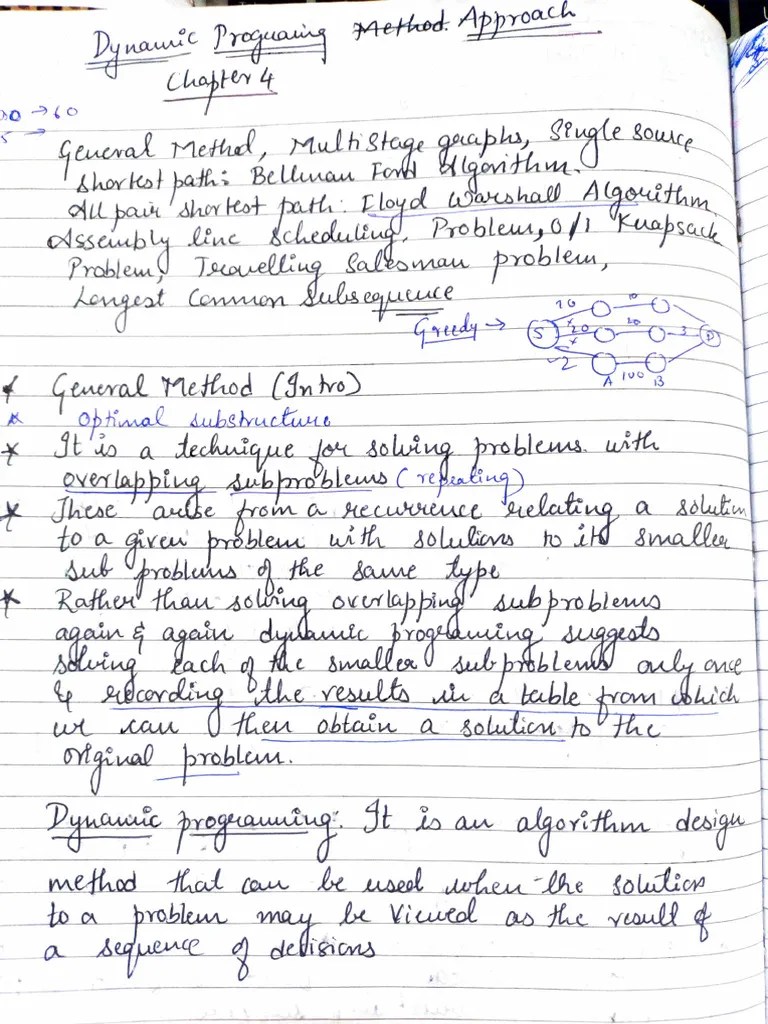 Dynamic Programing Method Approach
Chapter 4
→ 60
5 →
General Method, MultiStage graphs, Single source
Shortest path: Bellman Ford Algorithm.
All pair shortest path: Floyd Warshall Algorithm,
Assembly line scheduling, Problem, 0/1 Knapsack
Problem, Travelling Salesman problem,
Longest Common Subsequence
Greedy → S 10 10
20 20 3 D
2 A 100 B
* General Method (Intro)
* Optimal substructure
* It is a technique for solving problems with
overlapping subproblems (repeating)
* These arise from a recurrence relating a solution
to a given problem with solutions to its smaller
sub problems of the same type
* Rather than solving overlapping subproblems
again & again dynamic programing suggests
solving each of the smaller subproblems only once
& recording the results in a table from which
we can then obtain a solution to the
original problem.
Dynamic programming: It is an algorithm design
method that can be used when the solution
to a problem may be viewed as the result of
a sequence of decisions